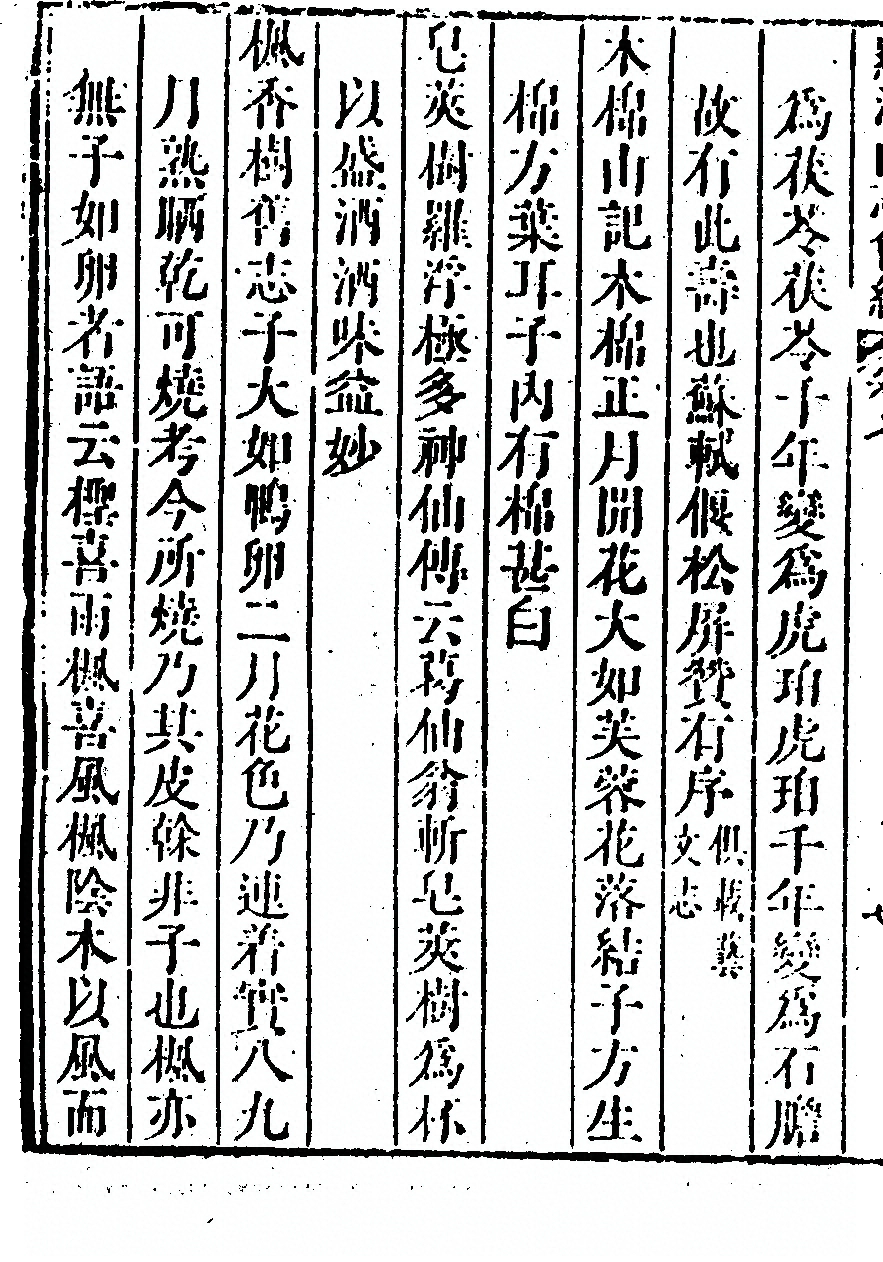 爲茯苓茯苓千年變爲虎珀虎珀千年變爲石膽
故有此壽也蘇軾偃松屏贊有序俱載藝文志
木棉山記木棉正月開花大如芙蓉花落結子方生
棉方葉耳子內有棉甚白
皂莢樹羅浮極多神仙傳云葛仙翁斬皂莢樹爲杯
以盛酒酒味益妙
楓香樹舊志子大如鴨卵二月花色乃連着實八九
月熟晒乾可燒考今所燒乃其皮餘非子也楓亦
無子如卵者語云檟喜雨楓喜風楓陰木以風而